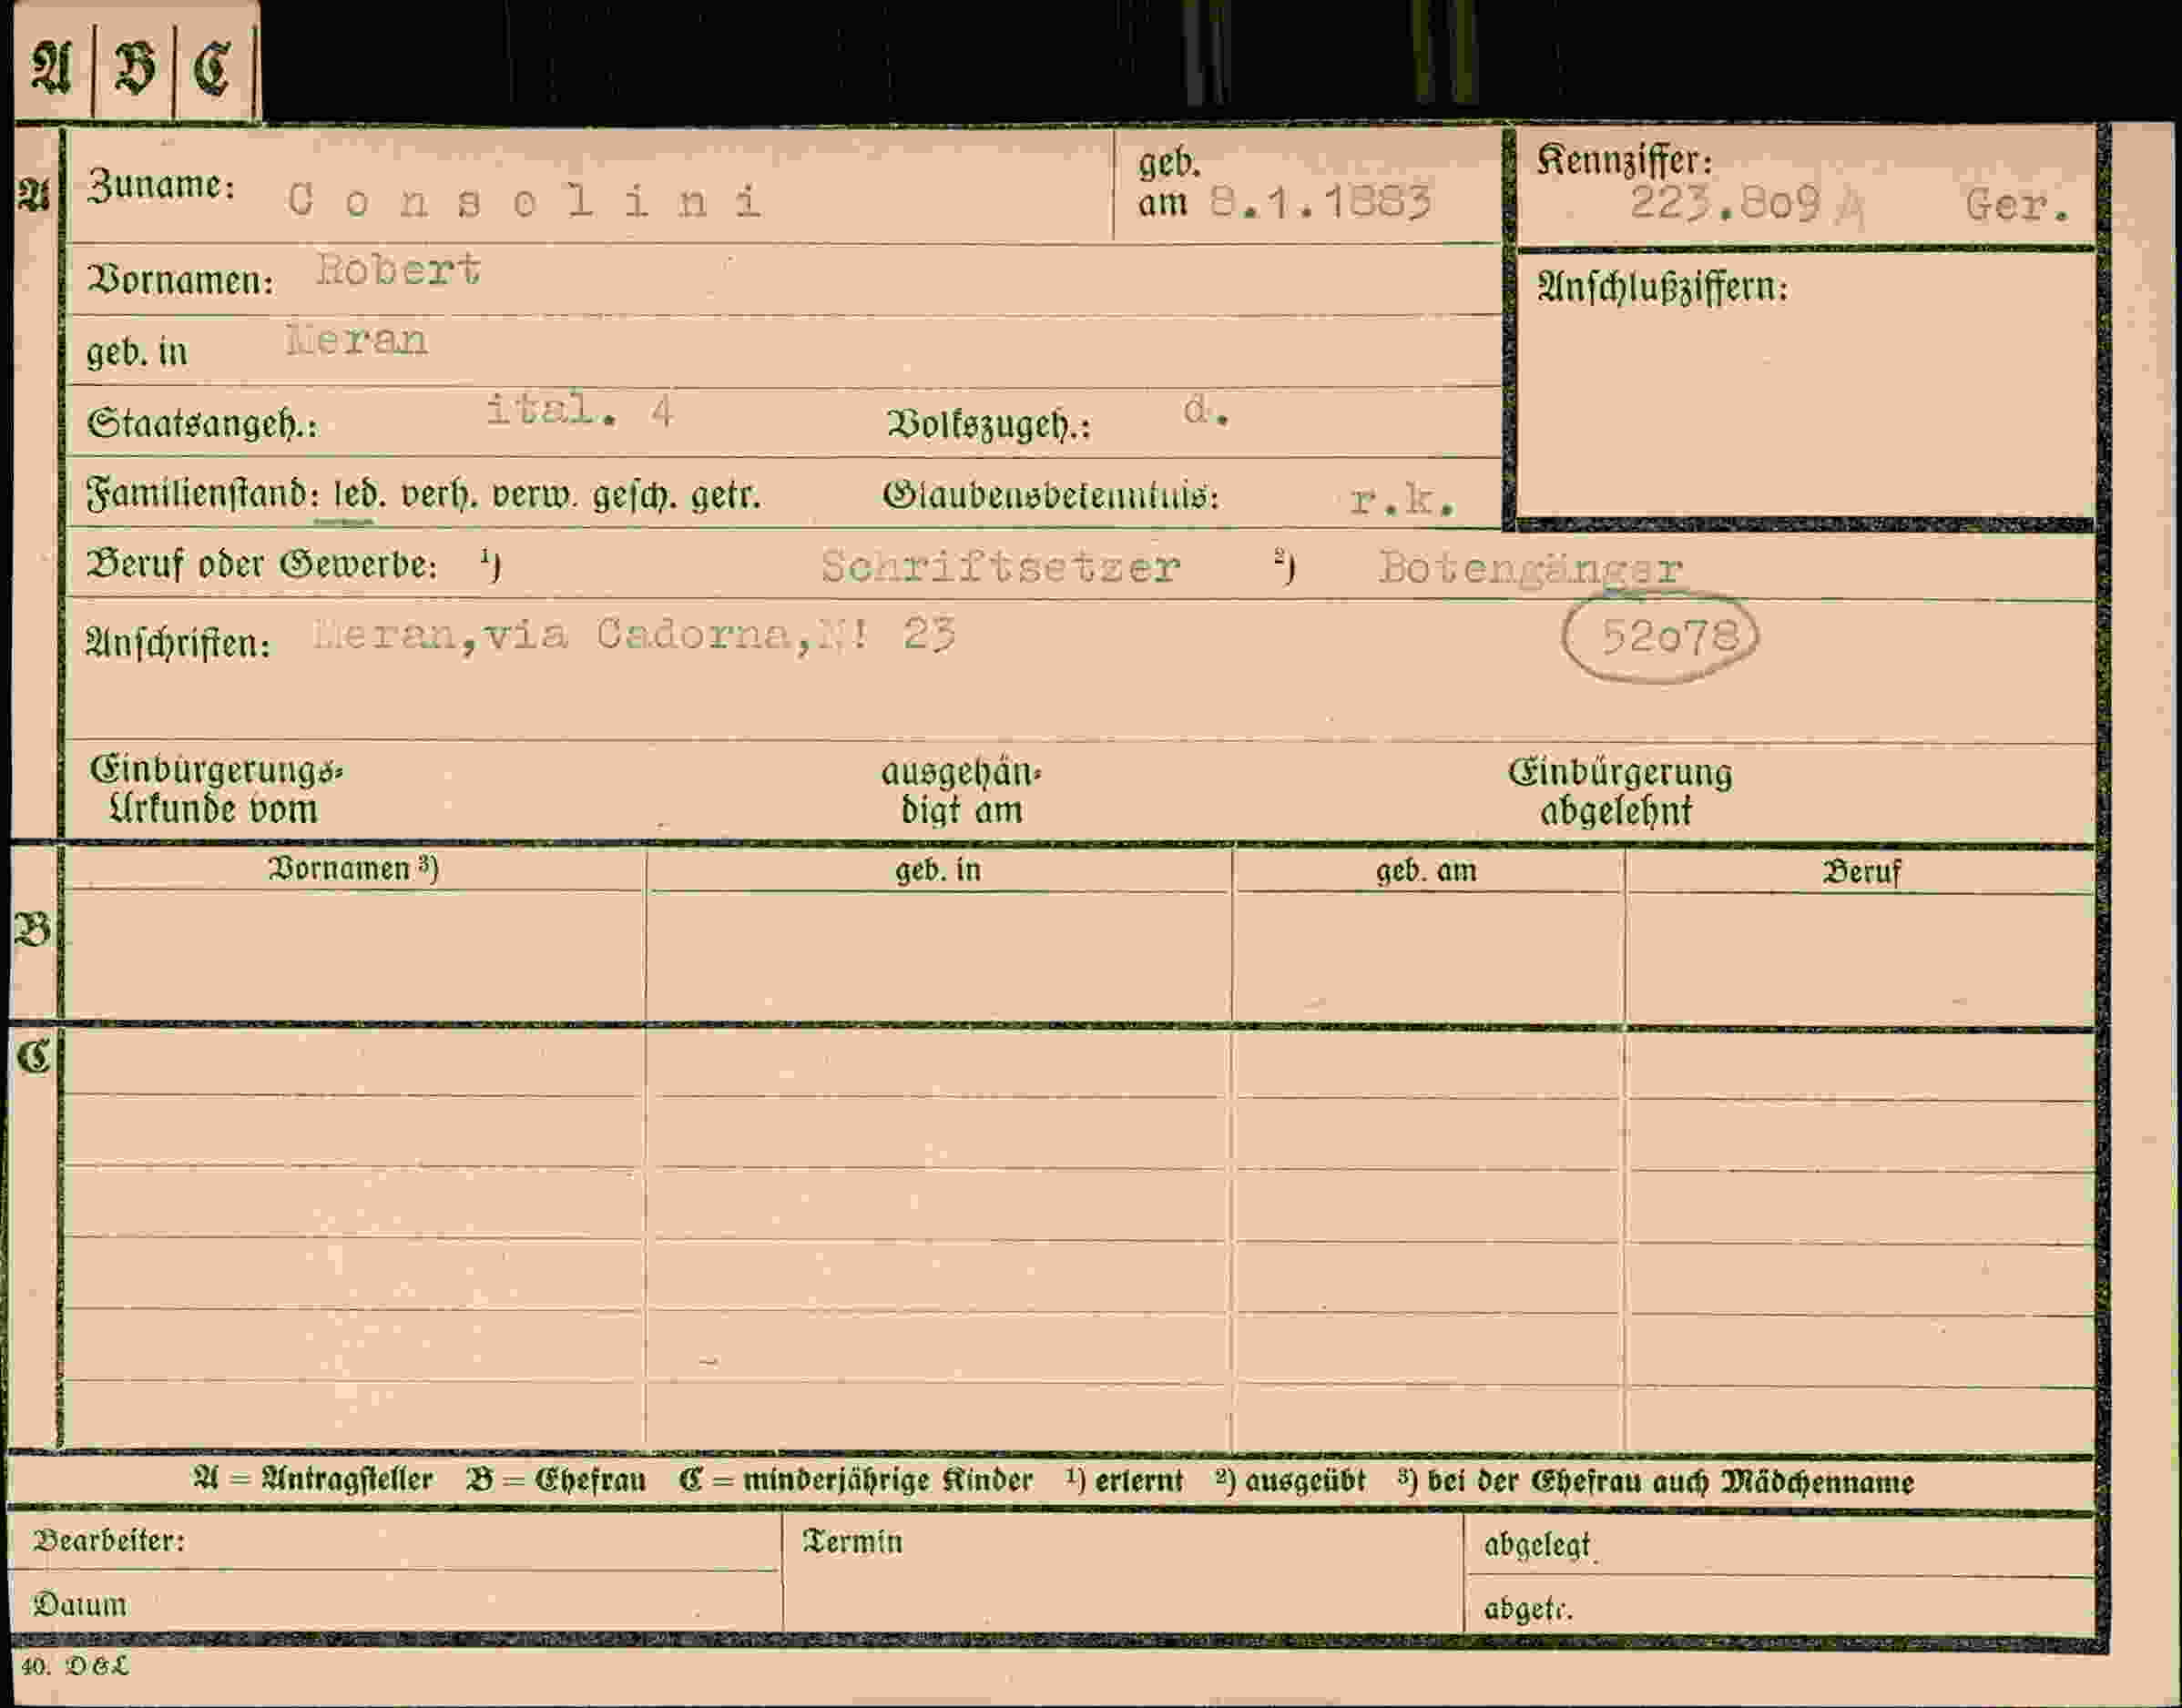 A | B | C
A Zuname: Consolini geb. am 8.1.1883 Kennziffer: 223.8o9 A Ger.
Vornamen: Robert Anschlußziffern:
geb. in Meran
Staatsangeh.: ital. 4 Volkszugeh.: d.
Familienstand: led. verh. verw. gesch. getr. Glaubensbekenntnis: r.k.
Beruf oder Gewerbe: ¹) Schriftsetzer ²) Botengänger
Anschriften: Meran,via Cadorna,N! 23 52o78
Einbürgerungs- ausgehän- Einbürgerung
Urkunde vom digt am abgelehnt
Vornamen ³) geb. in geb. am Beruf
B
C
A = Antragsteller B = Ehefrau C = minderjährige Kinder ¹) erlernt ²) ausgeübt ³) bei der Ehefrau auch Mädchenname
Bearbeiter: Termin abgelegt
Datum abgetr.
40. D & L